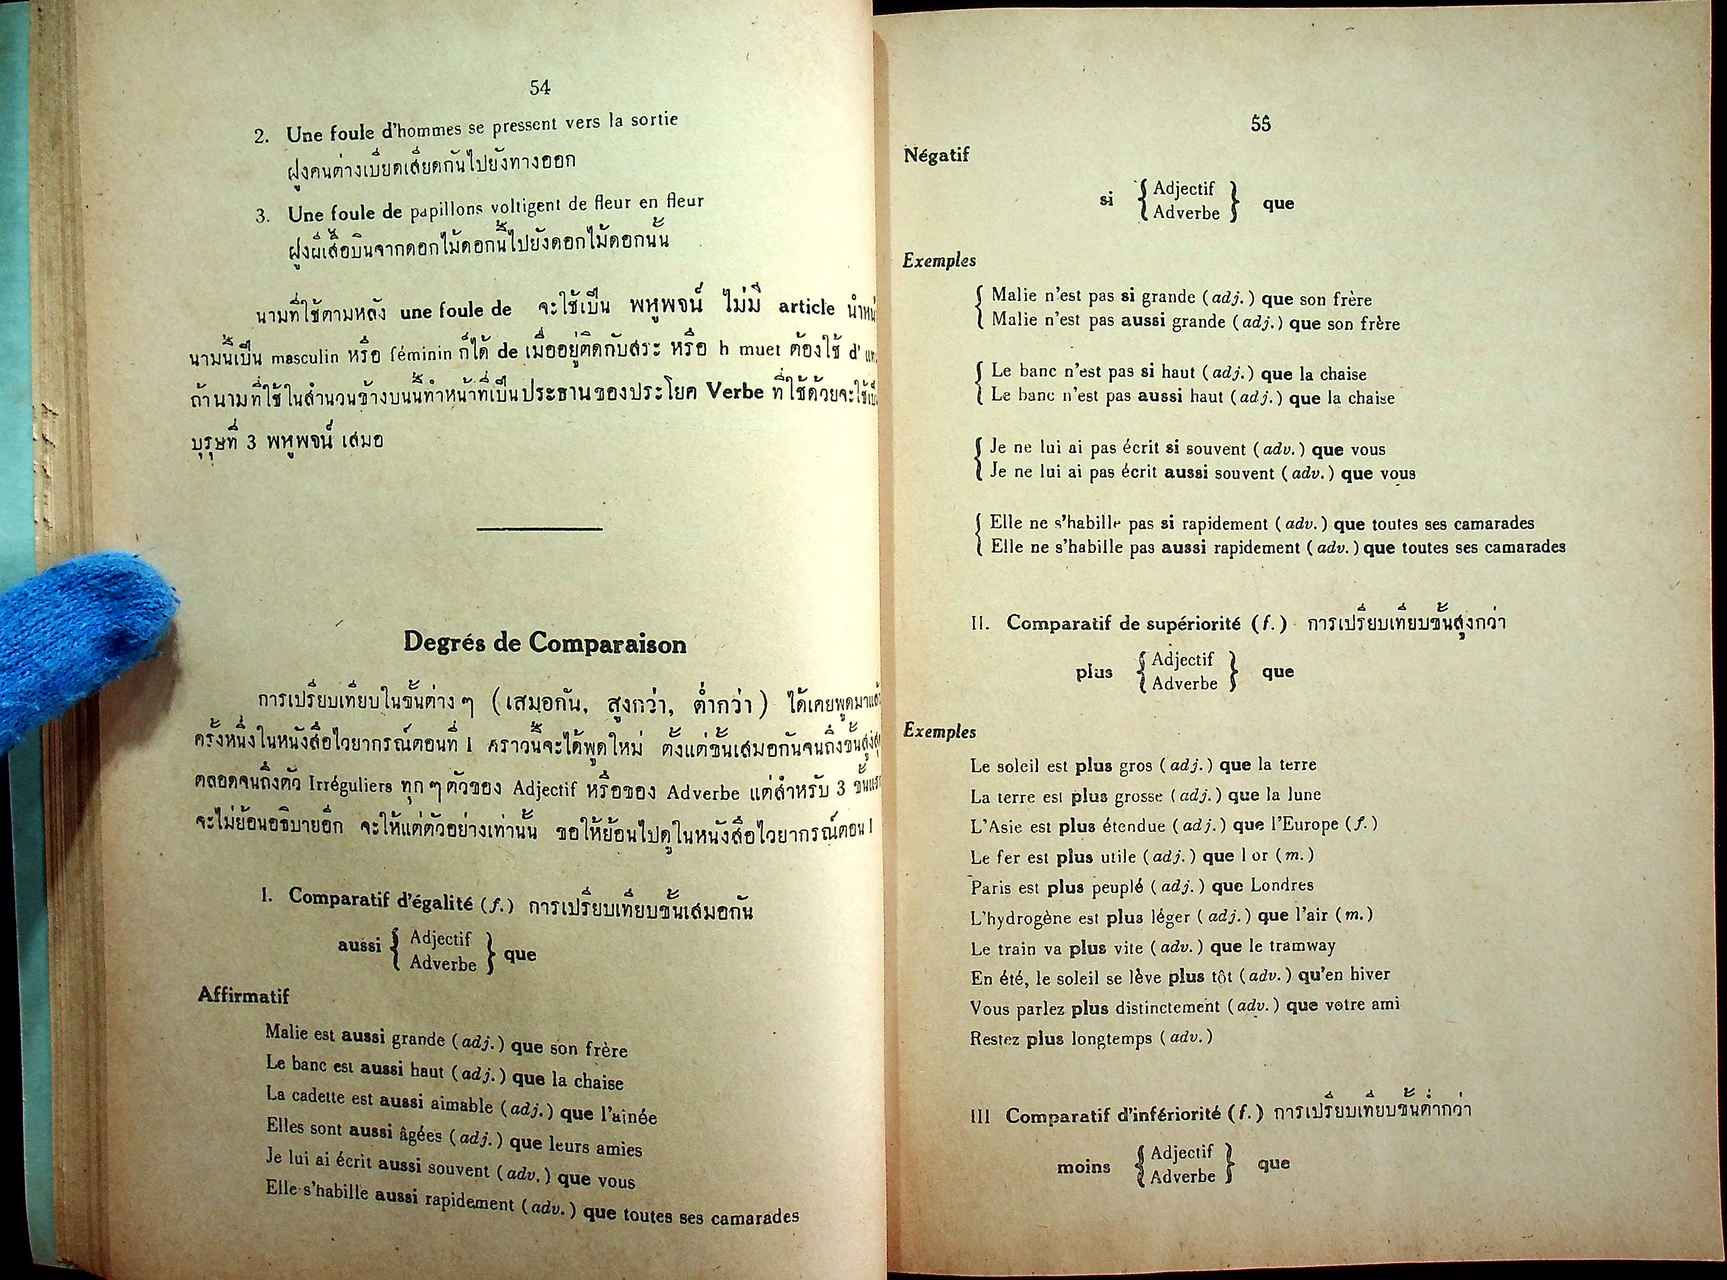 54
2. Une foule d'hommes se pressent vers la sortie
ฝูงคนต่างเบียดเสียดกันไปยังทางออก
3. Une foule de papillons voltigent de fleur en fleur
ฝูงผีเสื้อบินจากดอกไม้ดอกนี้ไปยังดอกไม้ดอกนั้น
นามที่ใช้ตามหลัง une foule de จะใช้เป็น พหูพจน์ ไม่มี article นำหน้
นามนี้เป็น masculin หรือ féminin ก็ได้ de เมื่ออยู่ติดกับสระ หรือ h muet ต้องใช้ d'
ถ้านามที่ใช้ในสำนวนข้างบนนี้ทำหน้าที่เป็นประธานของประโยค Verbe ที่ใช้ด้วยจะใช้เป็
บุรุษที่ 3 พหูพจน์ เสมอ
Degrés de Comparaison
การเปรียบเทียบในขั้นต่าง ๆ (เสมอกัน, สูงกว่า, ต่ำกว่า) ได้เคยพูดมาแล้ว
ครั้งหนึ่งในหนังสือไวยากรณ์ตอนที่ 1 คราวนี้จะได้พูดใหม่ ตั้งแต่ขั้นเสมอกันจนถึงขั้นสูงสุ
ตลอดจนถึงตัว Irréguliers ทุก ๆ ตัวของ Adjectif หรือของ Adverbe แต่สำหรับ 3 ขั้นแรก
จะไม่ย้อนอธิบายอีก จะให้แต่ตัวอย่างเท่านั้น ขอให้ย้อนไปดูในหนังสือไวยากรณ์ตอน 1
I. Comparatif d'égalité (f.) การเปรียบเทียบขั้นเสมอกัน
aussi { Adjectif
Adverbe } que
Affirmatif
Malie est aussi grande (adj.) que son frère
Le banc est aussi haut (adj.) que la chaise
La cadette est aussi aimable (adj.) que l'aînée
Elles sont aussi âgées (adj.) que leurs amies
Je lui ai écrit aussi souvent (adv.) que vous
Elle s'habille aussi rapidement (adv.) que toutes ses camarades
55
Négatif
si { Adjectif
Adverbe } que
Exemples
Malie n'est pas si grande (adj.) que son frère
Malie n'est pas aussi grande (adj.) que son frère
Le banc n'est pas si haut (adj.) que la chaise
Le banc n'est pas aussi haut (adj.) que la chaise
Je ne lui ai pas écrit si souvent (adv.) que vous
Je ne lui ai pas écrit aussi souvent (adv.) que vous
Elle ne s'habille pas si rapidement (adv.) que toutes ses camarades
Elle ne s'habille pas aussi rapidement (adv.) que toutes ses camarades
II. Comparatif de supériorité (f.) การเปรียบเทียบขั้นสูงกว่า
plus { Adjectif
Adverbe } que
Exemples
Le soleil est plus gros (adj.) que la terre
La terre est plus grosse (adj.) que la lune
L'Asie est plus étendue (adj.) que l'Europe (f.)
Le fer est plus utile (adj.) que l or (m.)
Paris est plus peuplé (adj.) que Londres
L'hydrogène est plus léger (adj.) que l'air (m.)
Le train va plus vite (adv.) que le tramway
En été, le soleil se lève plus tôt (adv.) qu'en hiver
Vous parlez plus distinctement (adv.) que votre ami
Restez plus longtemps (adv.)
III Comparatif d'infériorité (f.) การเปรียบเทียบขั้นต่ำกว่า
moins { Adjectif
Adverbe } que